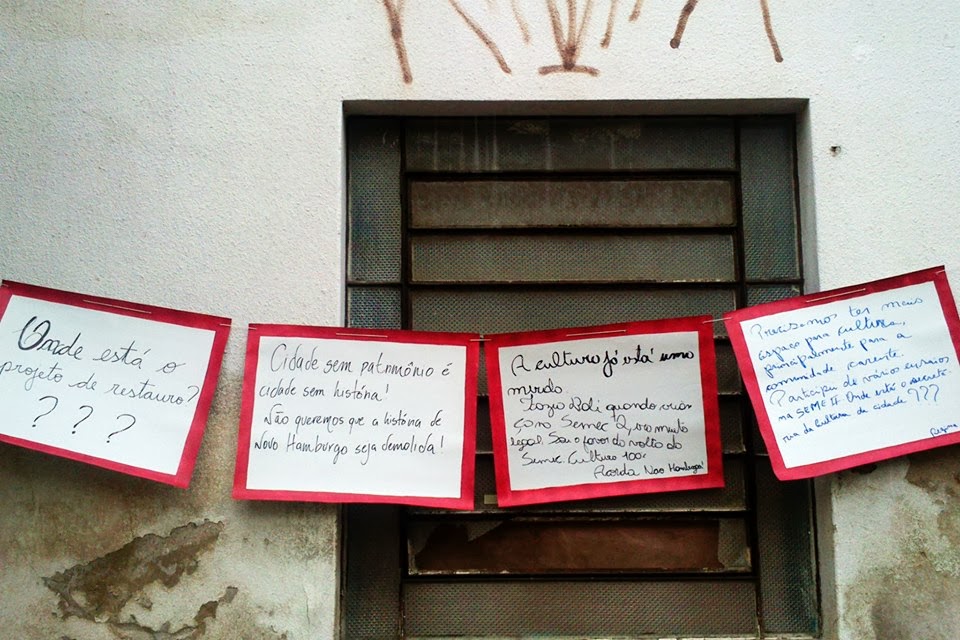 Onde está o
projeto de restauro?
? ? ?
Cidade sem patrimônio é
cidade sem história!
Não queremos que a história de
Novo Hamburgo seja demolida!
A cultura já está uma
merda.
Fazia quando
ça no Semec 2, era muito
legal. Sou a favor da volta do
Semec Cultura
Acorda Novo Hamburgo!
Precisamos ter mais
espaço para cultura,
principalmente para a
comunidade carente.
Participei de vários cursos
na SEMEC II. Onde está o
da cultura da cidade ???
Regina